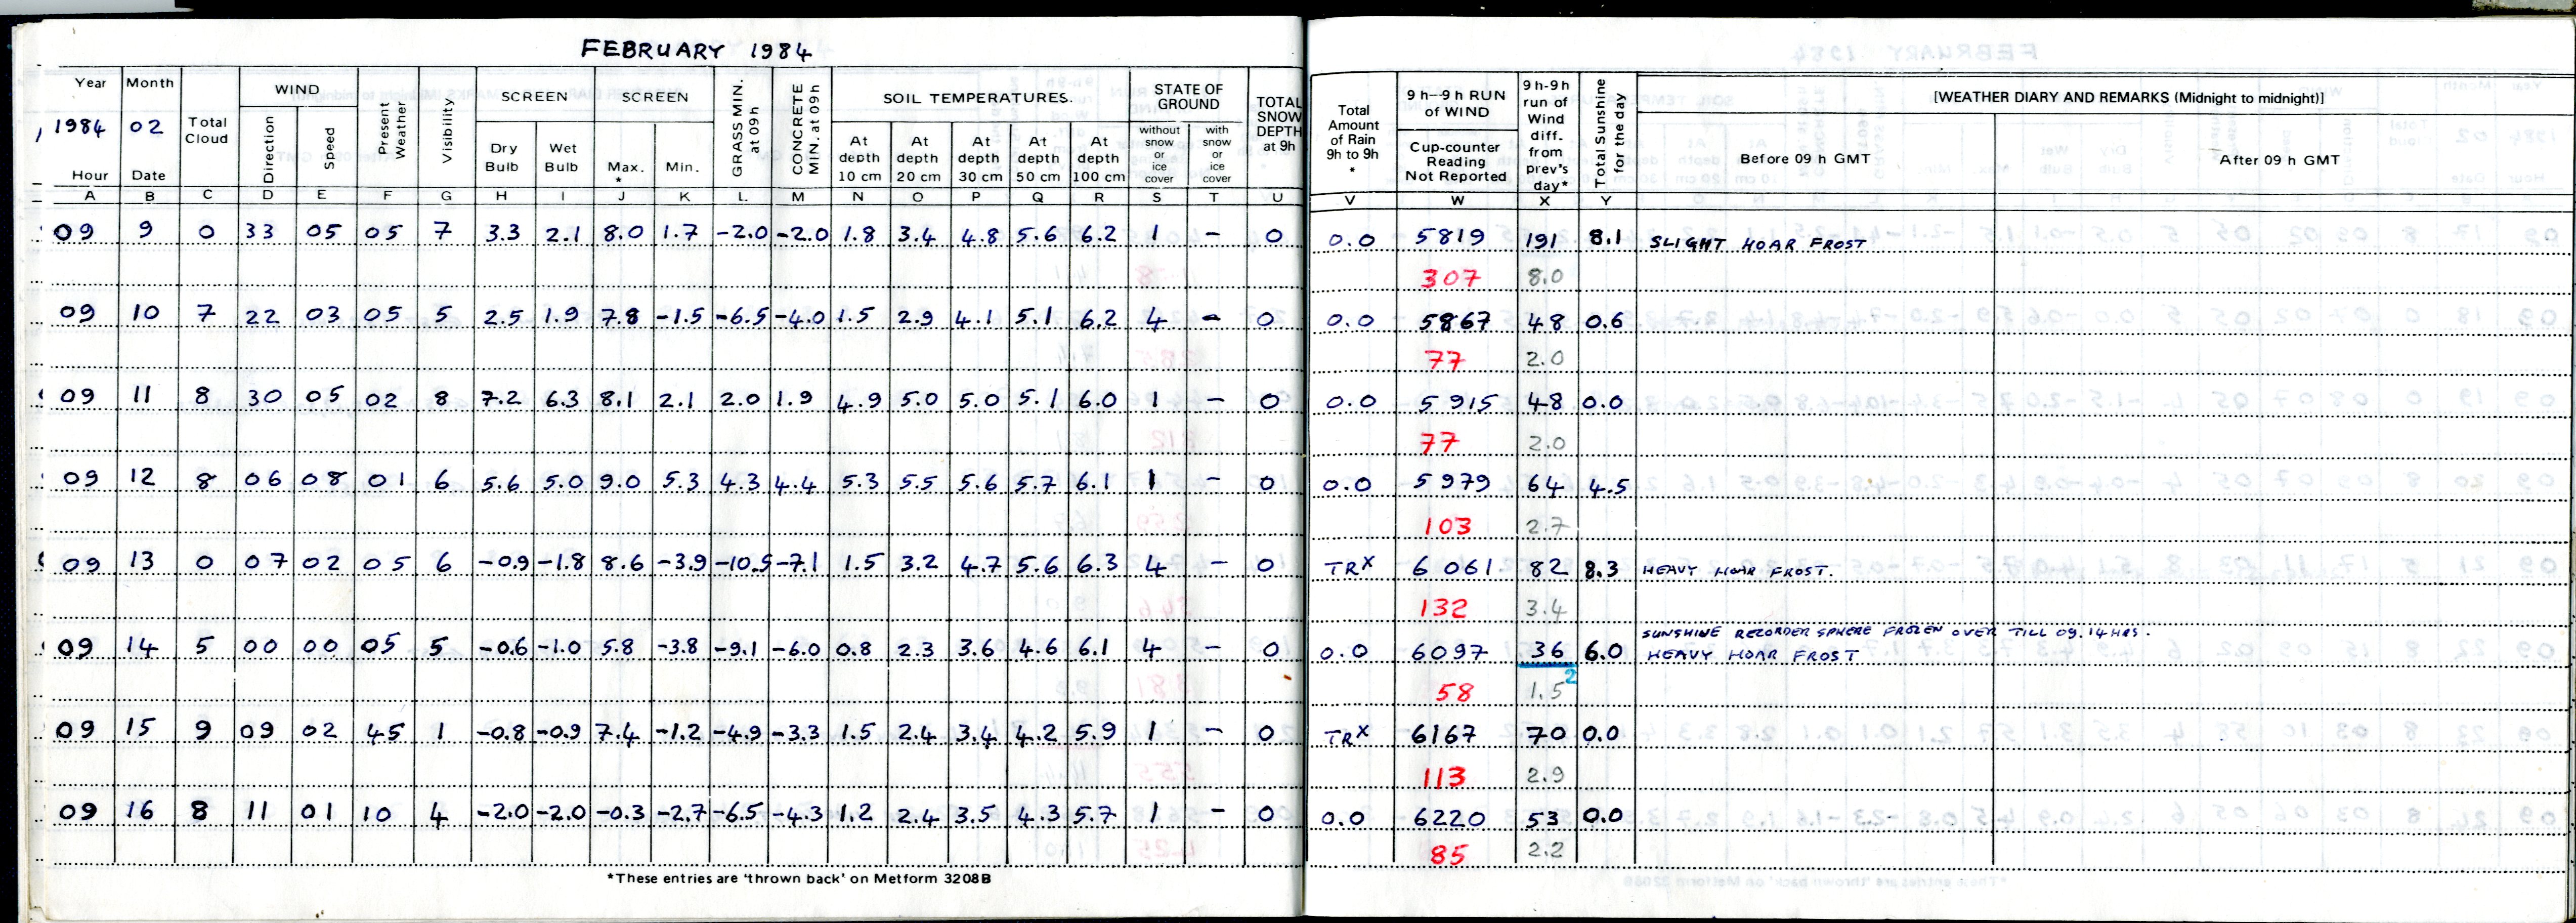 FEBRUARY 1984
Year Month Total Cloud WIND Present Weather Visibility SCREEN SCREEN GRASS MIN. at 09h CONCRETE MIN. at 09h SOIL TEMPERATURES. STATE OF GROUND TOTAL SNOW DEPTH at 9h Total Amount of Rain 9h to 9h * 9 h—9 h RUN of WIND 9 h-9h run of Wind diff. from prev's day* Total Sunshine for the day [WEATHER DIARY AND REMARKS (Midnight to midnight)]
1984 02 Direction Speed Dry Bulb Wet Bulb Max. * Min. At depth 10 cm At depth 20 cm At depth 30 cm At depth 50 cm At depth 100 cm without snow or ice cover with snow or ice cover Cup-counter Reading Not Reported Before 09 h GMT After 09 h GMT
Hour Date
A B C D E F G H I J K L M N O P Q R S T U V W X Y
09 9 0 33 05 05 7 3.3 2.1 8.0 1.7 -2.0 -2.0 1.8 3.4 4.8 5.6 6.2 1 - 0 0.0 5819 191 8.1 SLIGHT HOAR FROST
307 8.0
09 10 7 22 03 05 5 2.5 1.9 7.8 -1.5 -6.5 -4.0 1.5 2.9 4.1 5.1 6.2 4 - 0 0.0 5867 48 0.6
77 2.0
09 11 8 30 05 02 8 7.2 6.3 8.1 2.1 2.0 1.9 4.9 5.0 5.0 5.1 6.0 1 - 0 0.0 5915 48 0.0
77 2.0
09 12 8 06 08 01 6 5.6 5.0 9.0 5.3 4.3 4.4 5.3 5.5 5.6 5.7 6.1 1 - 0 0.0 5979 64 4.5
103 2.7
09 13 0 07 02 05 6 -0.9 -1.8 8.6 -3.9 -10.5 -7.1 1.5 3.2 4.7 5.6 6.3 4 - 0 TRX 6061 82 8.3 HEAVY HOAR FROST.
132 3.4
SUNSHINE RECORDER SPHERE FROZEN OVER TILL 09.14 HRS.
09 14 5 00 00 05 5 -0.6 -1.0 5.8 -3.8 -9.1 -6.0 0.8 2.3 3.6 4.6 6.1 4 - 0 0.0 6097 36 6.0 HEAVY HOAR FROST
58 1.5 2
09 15 9 09 02 45 1 -0.8 -0.9 7.4 -1.2 -4.9 -3.3 1.5 2.4 3.4 4.2 5.9 1 - 0 TRX 6167 70 0.0
113 2.9
09 16 8 11 01 10 4 -2.0 -2.0 -0.3 -2.7 -6.5 -4.3 1.2 2.4 3.5 4.3 5.7 1 - 0 0.0 6220 53 0.0
85 2.2
*These entries are 'thrown back' on Metform 3208B